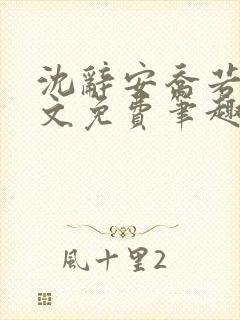 沈辭安喬若
文免費筆趣
風十里2